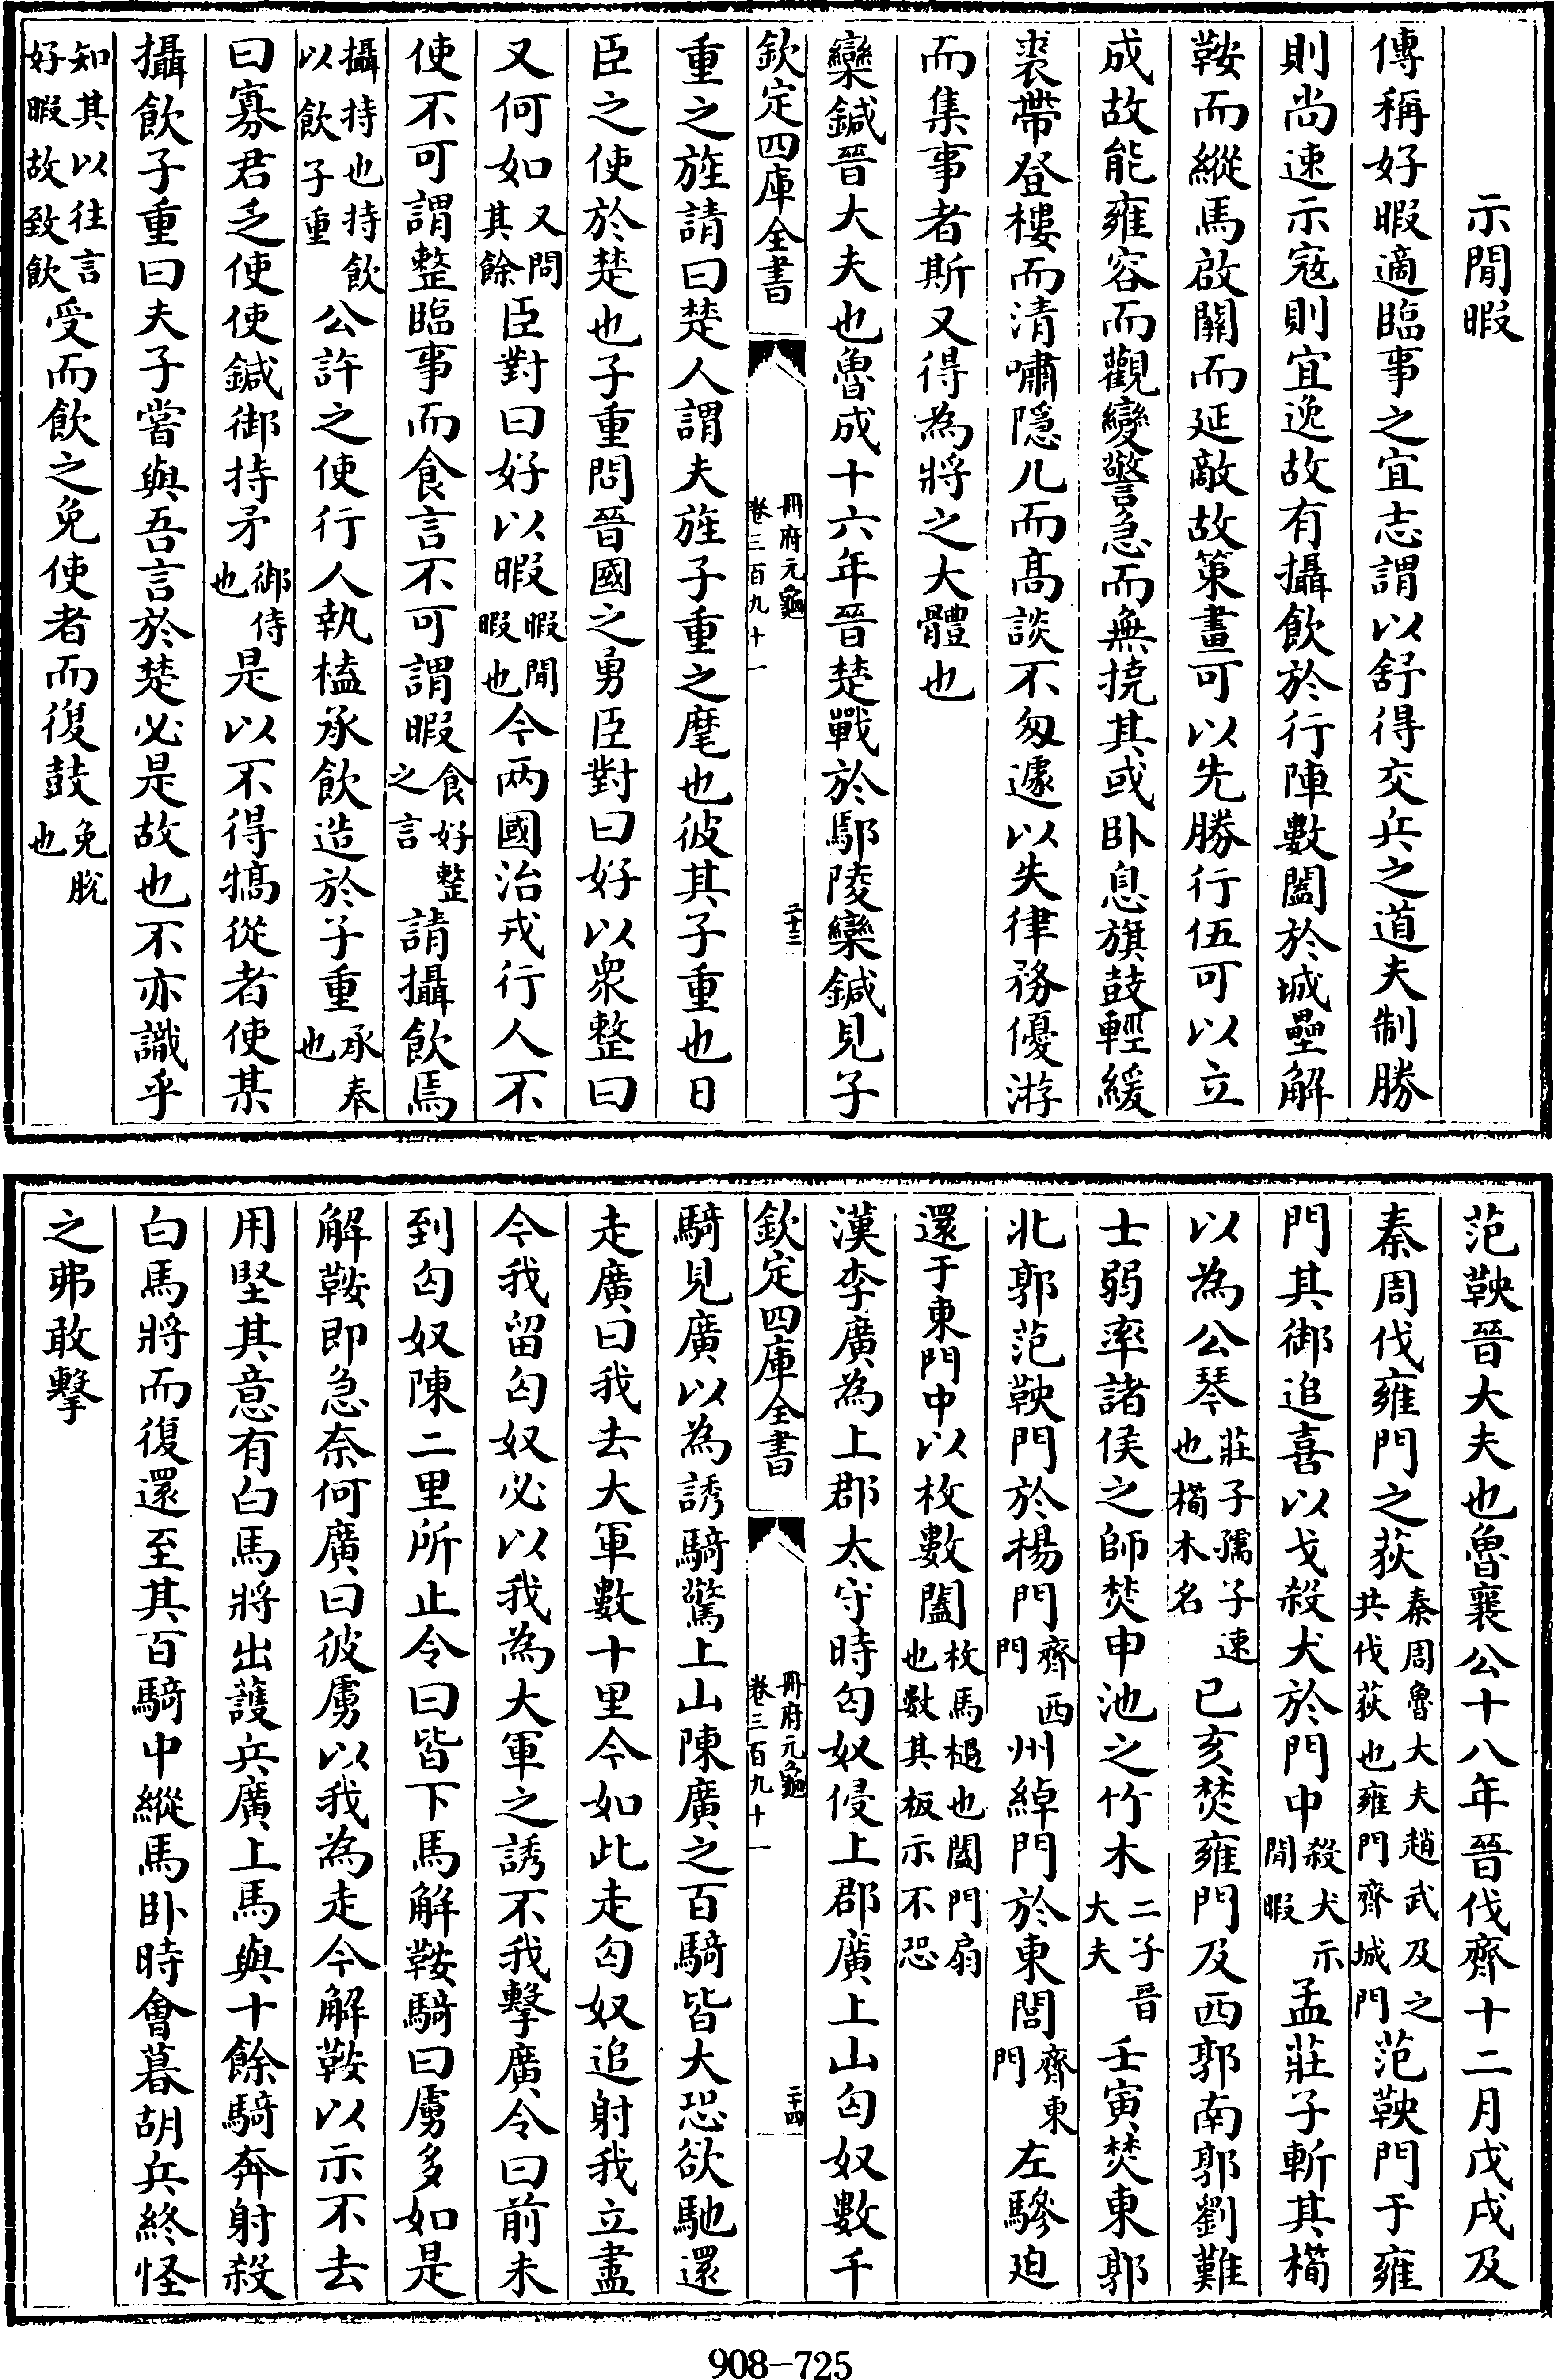 示閒暇
傳稱好暇適臨事之宜志謂以舒得交兵之道夫制勝
則尚速示寇則宜逸故有攝飲於行陣數闔於城壘解
鞍而縱馬啟關而延敵故策畫可以先勝行伍可以立
成故能雍容而觀變警急而無撓其或卧息旗鼓輕緩
裘帶登樓而清嘯隱几而髙談不匆遽以失律務優游
而集事者斯又得為將之大體也
欒鍼晉大夫也魯成十六年晉楚戰於鄢陵欒鍼見子
欽定四庫全書 冊府元龜 卷三百九十一 二十三
重之旌請曰楚人謂夫旌子重之麾也彼其子重也日
臣之使於楚也子重問晉國之勇臣對曰好以衆整曰
又何如又問其餘臣對曰好以暇暇閒暇也今兩國治戎行人不
使不可謂整臨事而食言不可謂暇食好整之言請攝飲焉
攝持也持飲以飲子重公許之使行人執榼承飲造於子重承奉也
曰寡君乏使使鍼御持矛御侍也是以不得犒從者使某
攝飲子重曰夫子嘗與吾言於楚必是故也不亦識乎
知其以往言好暇故致飲受而飲之免使者而復鼓免脫也
范鞅晉大夫也魯襄公十八年晉伐齊十二月戊戌及
秦周伐雍門之荻秦周魯大夫趙武及之共伐荻也雍門齊城門范鞅門于雍
門其御追喜以戈殺犬於門中殺犬示閒暇孟莊子斬其橁
以為公琴莊子孺子速也橁木名己亥焚雍門及西郭南郭劉難
士弱率諸侯之師焚申池之竹木二子晉大夫壬寅焚東郭
北郭范鞅門於楊門齊西門州綽門於東閭齊東門左驂廹
還于東門中以枚數闔枚馬檛也闔門扇也數其板示不恐
漢李廣為上郡太守時匈奴侵上郡廣上山匈奴數千
欽定四庫全書 冊府元龜 卷三百九十一 二十四
騎見廣以為誘騎驚上山陳廣之百騎皆大恐欲馳還
走廣曰我去大軍數十里今如此走匈奴追射我立盡
今我留匈奴必以我為大軍之誘不我擊廣令曰前未
到匈奴陳二里所止令曰皆下馬解鞍騎曰虜多如是
解鞍即急奈何廣曰彼虜以我為走今解鞍以示不去
用堅其意有白馬將出護兵廣上馬與十餘騎奔射殺
白馬將而復還至其百騎中縱馬卧時會暮胡兵終怪
之弗敢擊
908-725